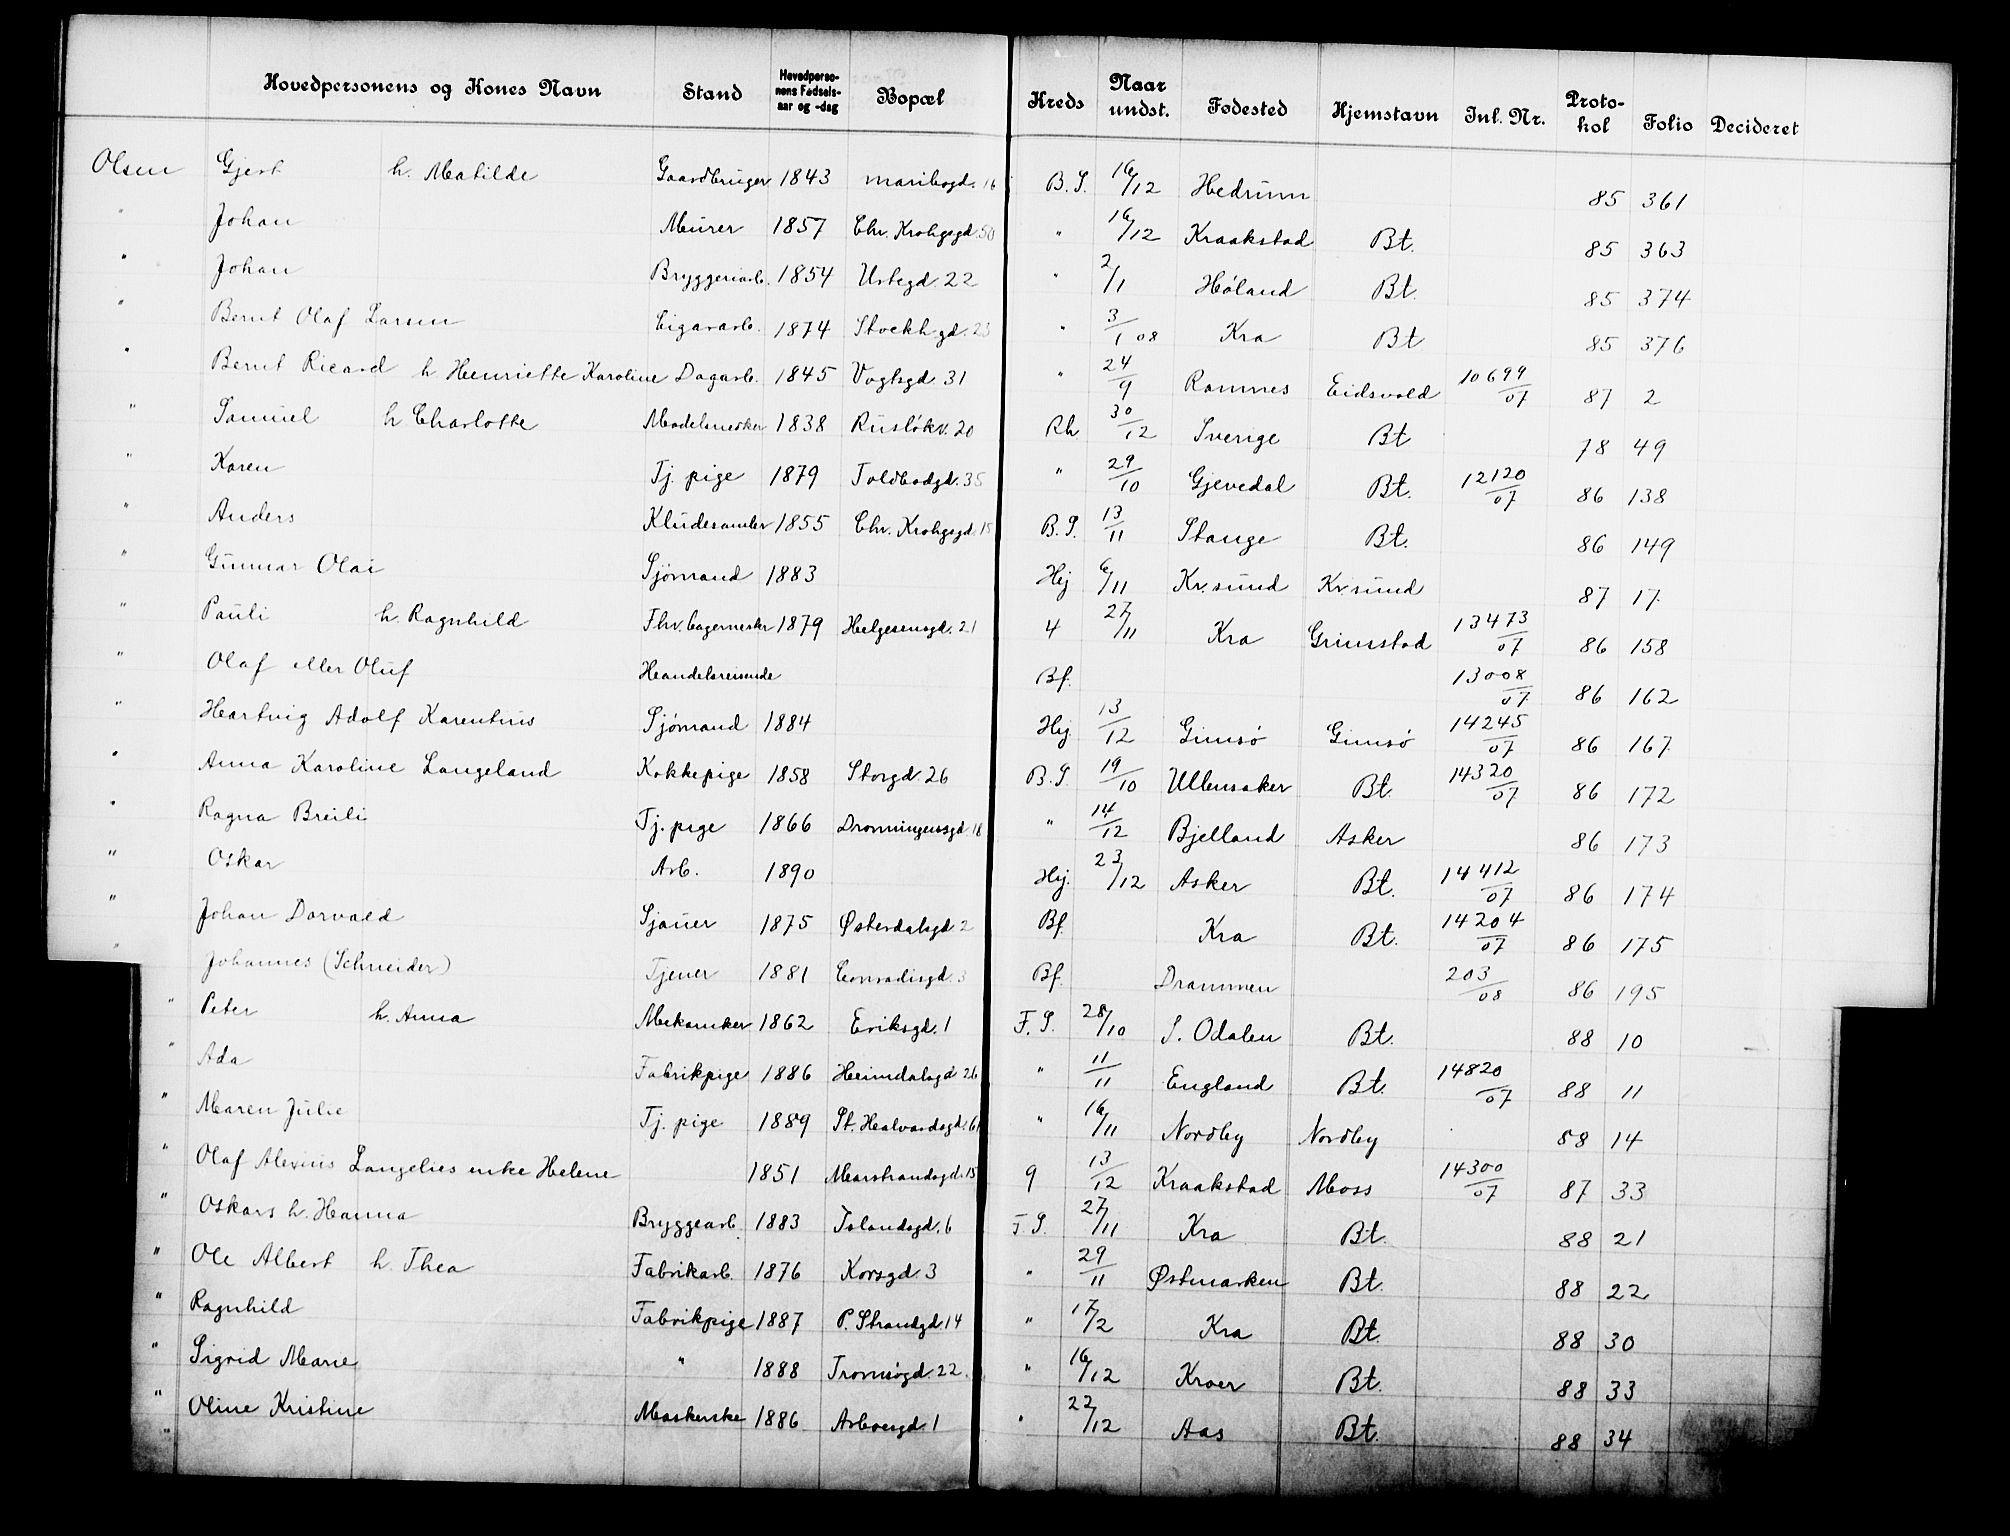 Hovedpersonens og Kones Navn Stand Hovedpersonens Fødselsaar og -dag Bopæl Kreds Naar undst. Fødested Hjemstavn Jnl. Nr. Protokol Folio Decideret
Olsen Gjert h. Matilde Gaardbruger 1843 Maribogd. 16 B.S. 16/12 Hedrum 85 361
" Johan Murer 1857 Chr. Krohgsgd. 50 " 16/12 Kraakstad Bt. 85 363
" Johan Bryggeriarb. 1854 Ustegd. 22 " 2/1 Høland Bt. 85 374
" Bernt Olaf Larsen Cigararb. 1874 Stockh.gd. 23 " 3/1 08 Kra Bt 85 376
" Bernt Ricard h Henriette Karoline Dagarb. 1845 Vogtsgd. 31 " 24/9 Ramnes Eidsvold 10699/07 87 2
" Samuel h Charlotte Modelsnekker 1838 Rusløkv. 20 Rh 30/12 Sverige Bt 78 49
" Karen Tj. pige 1879 Toldbodgd. 35 " 29/10 Gjevedal Bt. 12120/07 86 138
" Anders Kludesamler 1855 Chr. Krohgsgd. 15 B.S. 13/11 Stange Bt. 86 149
" Gunnar Olai Sjømand 1883 Hej 6/11 Kr.sund Kr.sund 87 17.
" Pauli h. Ragnhild Fhv. bagermester 1879 Helgesensgd. 21 4 27/11 Kra Grimstad 13473/07 86 158
" Olaf eller Oluf Handelsreisende Bf. 13008/07 86 162
" Hartvig Adolf Karentius Sjømand 1884 Hej 13/12 Gimsø Gimsø 14245/07 86 167.
" Anna Karoline Langeland Kokkepige 1858 Storgd. 26 B.S. 19/10 Ullensaker Bt. 14320/07 86 172
" Ragna Breili Tj. pige 1866 Dronningensgd. 18 " 14/12 Bjelland Asker 86 173
" Oskar Arb. 1890 Hej. 23/12 Asker Bt. 14412/07 86 174
" Johan Dorvald Sjauer 1875 Østerdalsgd. 2 Bf. Kra Bt. 14204/07 86 175
" Johannes (Schneider) Tjener 1881 Conradisgd. 3 Bf. Drammen 203/08 86 195
" Peter h. Anna Mekaniker 1862 Eriksgd. 1 F.S. 28/10 S. Odalen Bt. 88 10
" Ada Fabrikpige 1886 Heimdalsgd 26 " 11/11 England Bt. 14820/07 88 11
" Maren Julie Tj. pige 1889 St. Halvardsgd. 61 " 16/11 Nordby Nordby 88 14
" Olaf Alexius Langelies enke Helene 1851 Marstrandsgd. 15 9 13/12 Kraakstad Moss 14300/07 87 33
" Oskars h. Hanna Bryggearb. 1883 Islandsgd. 6 F.S. 27/11 Kra Bt. 88 21
" Ole Albert h. Thea Fabrikarb. 1876 Korsgd. 3 " 29/11 Østmarken Bt. 88 22
" Ragnhild Fabrikpige 1887 P. Strandgd. 14 " 17/2 Kra Bt. 88 30
" Sigrid Marie " 1888 Tromsøgd. 22. " 16/12 Kroer Bt. 88 33
" Oline Kristine 1886 Arboesgd. 1 " 22/12 Aas Bt. 88 34